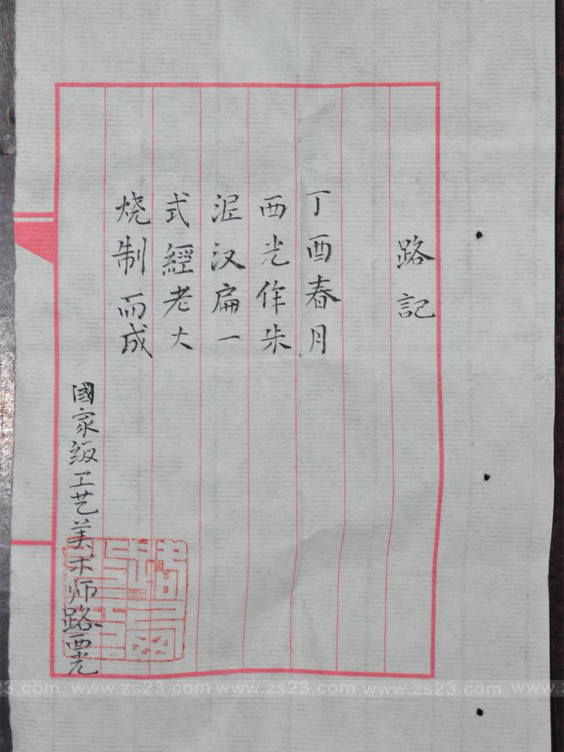 路記
丁酉春月
西光作朱
泥汉扁一
式經老大
烧制而成
國家级工艺美术师路西光
www.zs23.com www.zs23.com www.zs23.com www.zs23.com